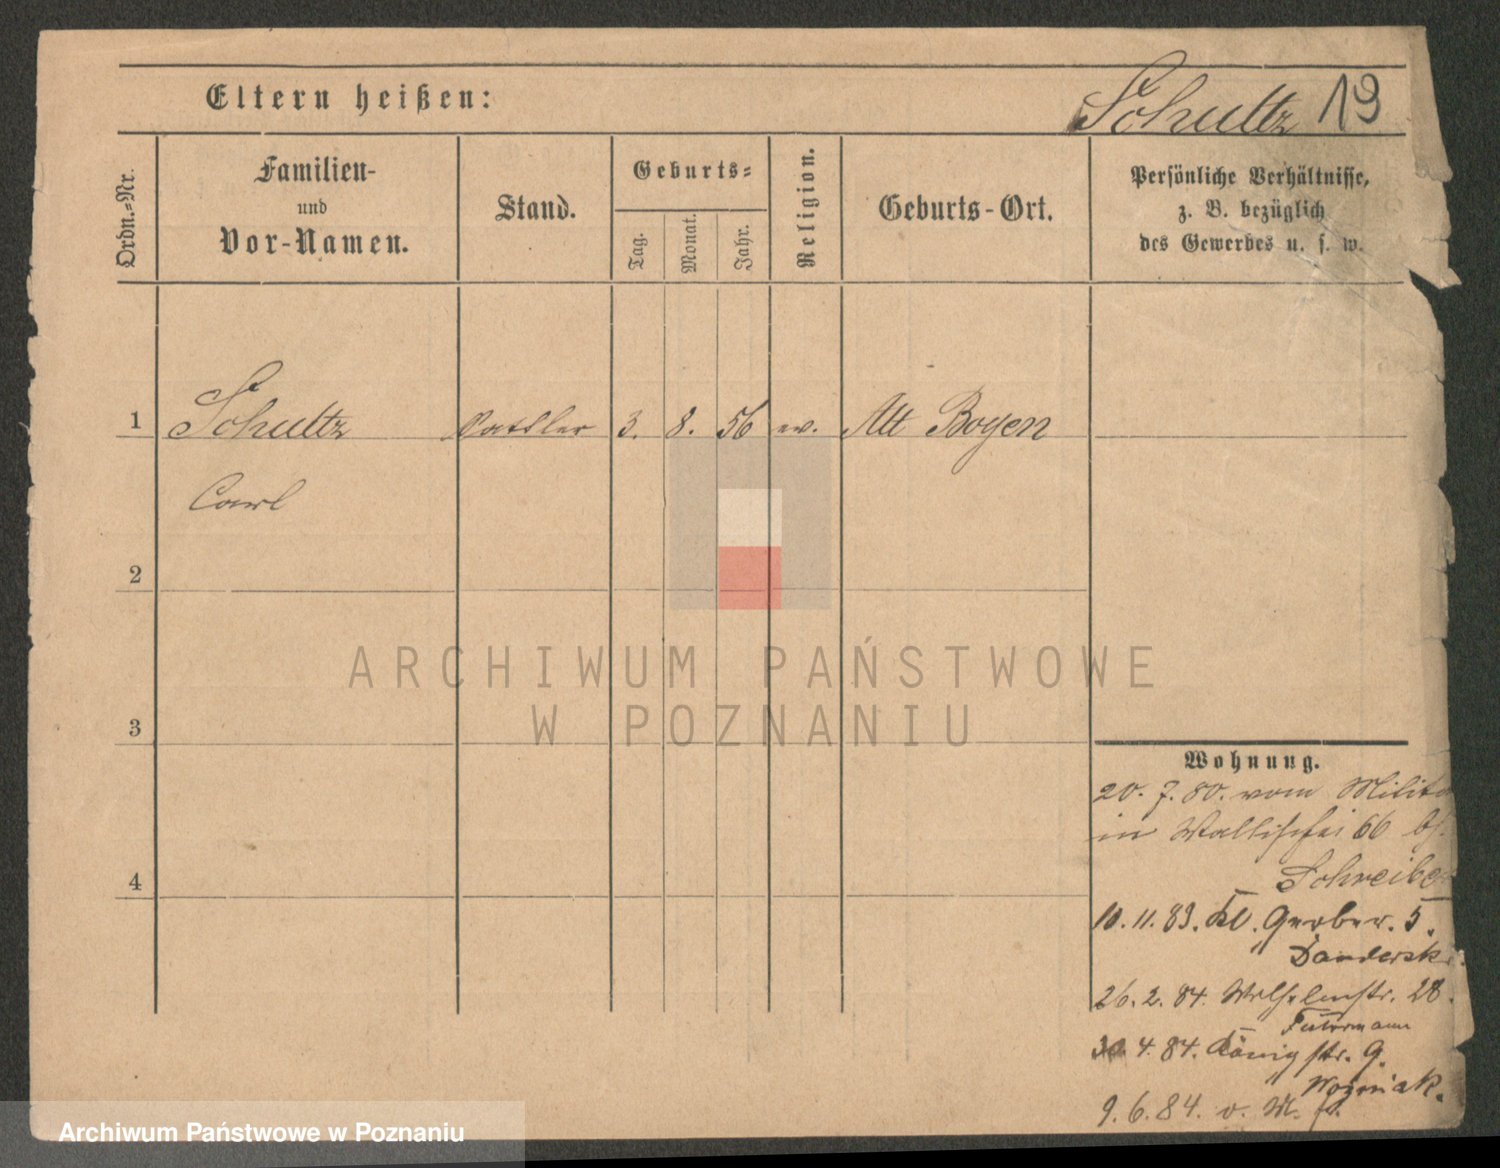 Eltern heißen:
Schultz 19
Ordn.-Nr.
Familien-
und
Vor-Namen.
Stand.
Geburts-
Tag.
Monat.
Jahr.
Religion.
Geburts-Ort.
Persönliche Verhältnisse,
z. B. bezüglich
des Gewerbes u. s. w.
1 Schultz Sattler 3. 8. 56 ev. Alt Boyen
Carl
2
3
4
ARCHIWUM PAŃSTWOWE
W POZNANIU
Wohnung.
20. 7. 80. vom
in Wallischei 66 b/.
Schreiber
10. 11. 83. Kl. Gerber. 5.
Danderski
26. 2. 84. Wilhelmstr. 28.
Fuhrmann
30. 4. 84. Königstr. 9.
Wozniak.
9. 6. 84. v. M.
Archiwum Państwowe w Poznaniu